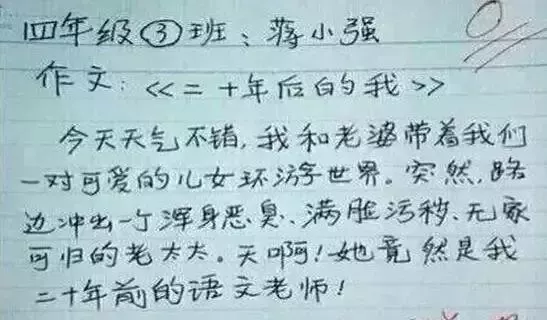 四年级③班：蒋小强
作文：<<二十年后的我>>
今天天气不错，我和老婆带着我们
一对可爱的儿女环游世界。突然，路
边冲出一个浑身恶臭、满脸污秽、无家
可归的老太太。天啊！她竟然是我
二十年前的语文老师！